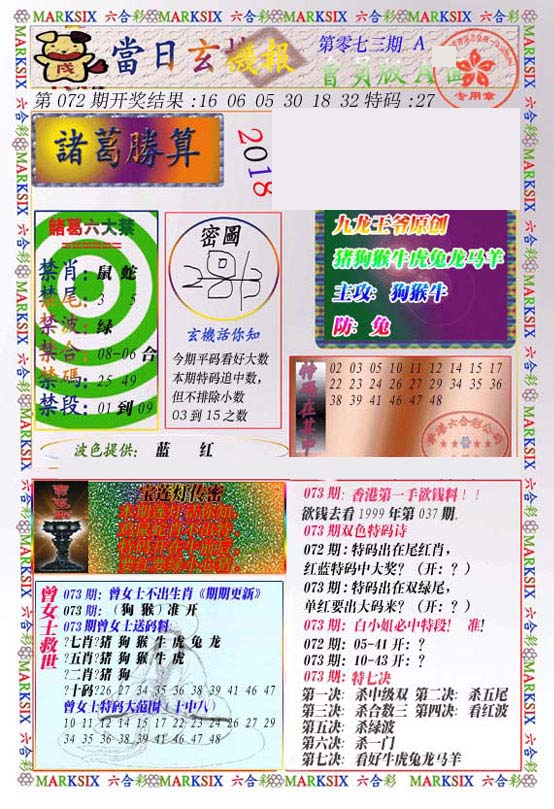 MARKSIX 六合彩 MARKSIX 六合彩 MARKSIX 六合彩 MARKSIX 六合彩 MARKSIX 六合彩
當日玄機報
第零七三期. A
會員版A面
专用章
第 072 期开奖结果 :16 06 05 30 18 32 特码 :27
諸葛勝算
2018
諸葛六大禁
禁肖: 鼠 蛇
禁尾: 3 5
禁波: 绿
禁合: 08-06 合
禁碼: 25 49
禁段: 01 到 09
密圖
玄機话你知
今期平码看好大数
本期特码追中数,
但不排除小数
03 到 15 之数
九龙王爷原创
猪狗猴牛虎兔龙马羊
主攻: 狗猴牛
防: 兔
02 03 05 10 11 12 14 15 17
22 23 24 26 27 29 34 35 36
38 39 41 46 47 48
波色提供: 蓝 红
宝莲灯传密
073 期: 香港第一手欲钱料 ! !
欲钱去看 1999 年第 037 期.
073 期双色特码诗
072 期 : 特码出在尾红肖,
红蓝特码中大奖? (开: ? )
073 期 : 特码出在双绿尾,
单红要出大码来? (开: ? )
073 期: 白小姐必中特段! 准!
072 期: 05-41 开: ?
073 期: 10-43 开: ?
073 期: 特七决
第一决: 杀中级双 第二决: 杀五尾
第三决: 杀合数三 第四决: 看红波
第五决: 杀绿波
第六决: 杀一门
第七决: 看好牛虎兔龙马羊
曾女士救世
073 期: 曾女士不出生肖《期期更新》
073 期: (狗 猴) 准 开
073 期曾女士送码料:
?七肖?猪 狗 猴 牛 虎 兔 龙
?五肖?猪 狗 猴 牛 虎
?二肖?猪 狗
?十码?26 27 34 35 36 38 39 41 46 47
曾女士特码大范围 (十中八)
10 11 12 14 15 17 22 23 24 26 27 29
34 35 36 38 39 41 46 47 48
MARKSIX 六合彩 MARKSIX 六合彩 MARKSIX 六合彩 MARKSIX 六合彩 MARKSIX 六合彩